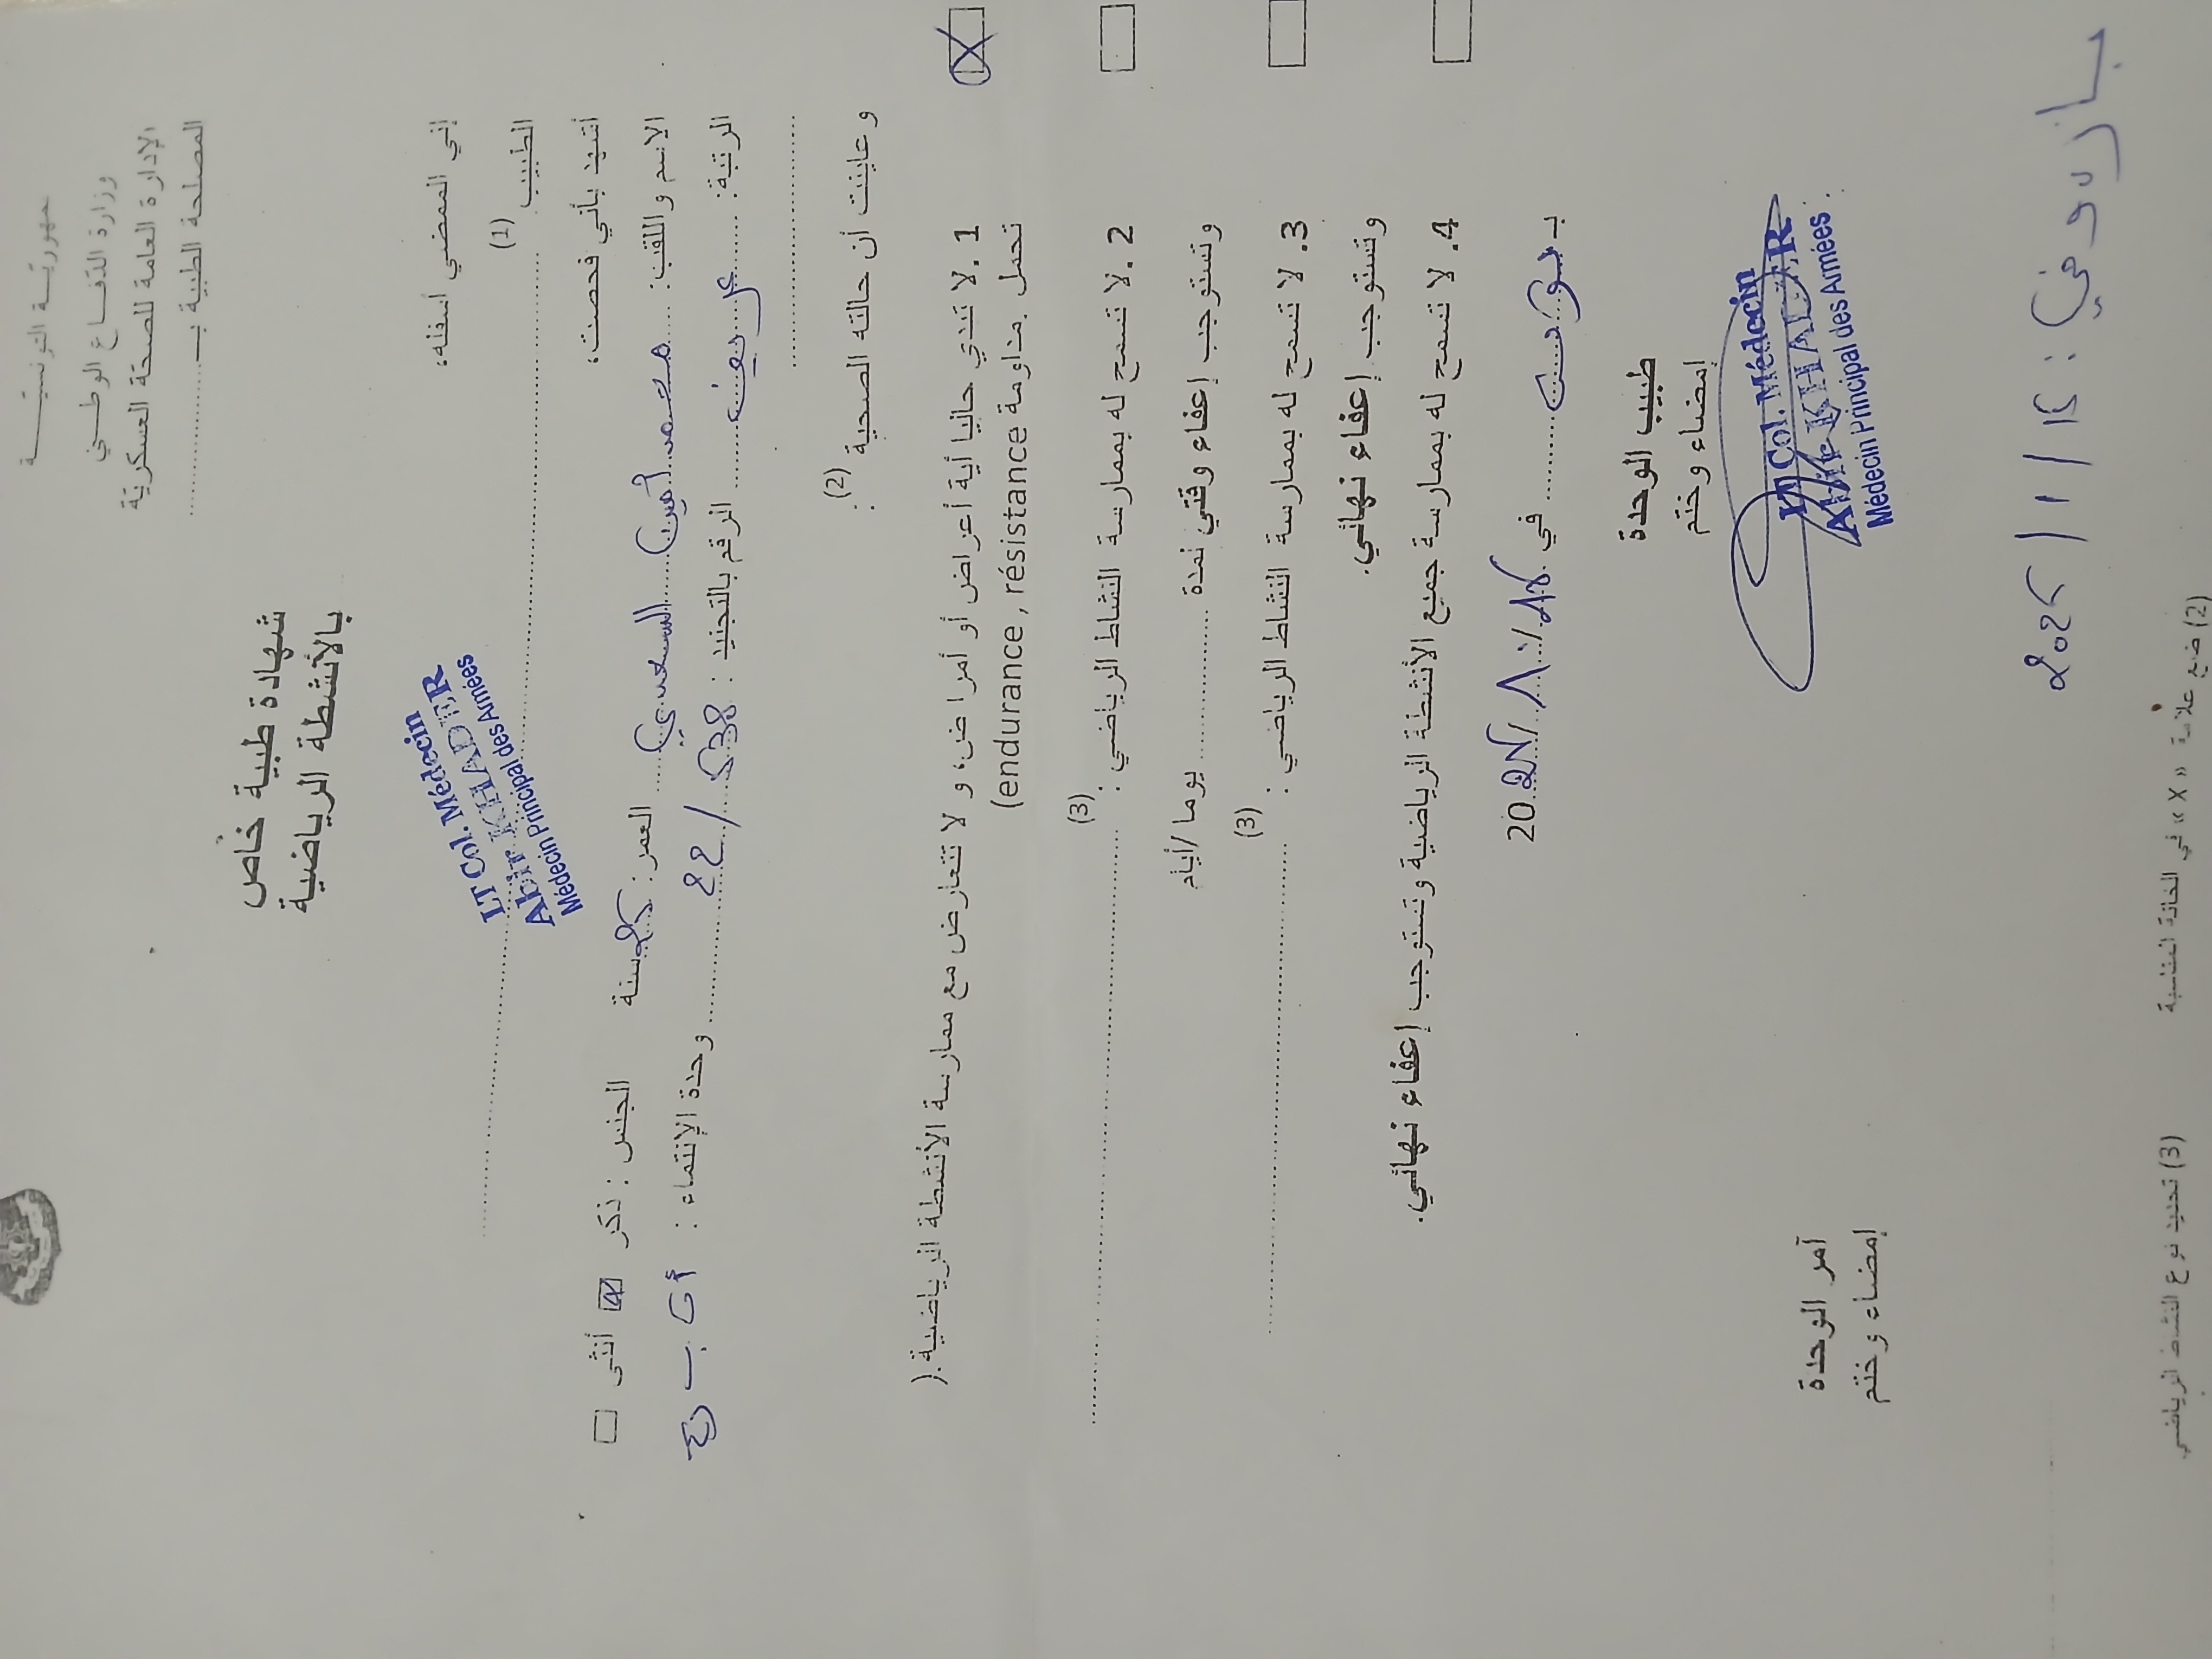 جمهوريّـــة التونسيّـــــــة
وزارة الدّفـــاع الوطـــني
الإدارة العامة للصحة العسكريّة
المصلحة الطبية بـ
شهادة طبية خاص
بالأنشطة الرياضية
إني الممضي أسفله،
الطبيب (1)
LT Col. Médecin
Abir KHADER
Médecin Principal des Armées
أشهد بأني فحصت،
الاسم واللقب: محمد أمين السعدي العمر: 25 سنة الجنس: ذكر ☑ أنثى ☐
الرتبة: عريف الرقم بالتجنيد: 22/538 وحدة الإنتماء:
وعاينت أن حالته الصحية (2) :
1. لا تبدي حاليا أية أعراض أو أمراض، و لا تتعارض مع ممارسة الأنشطة الرياضية.(
تحمل, مداومة endurance, résistance)
2. لا تسمح له بممارسة النشاط الرياضي (3) :
وتستوجب إعفاء وقتي لمدة يوما/أيام
3. لا تسمح له بممارسة النشاط الرياضي (3) :
وتستوجب إعفاء نهائي.
4. لا تسمح له بممارسة جميع الأنشطة الرياضية وتستوجب إعفاء نهائي.
بـ في 20
طبيب الوحدة
إمضاء وختم
LT Col. Médecin
Abir KHADER
Médecin Principal des Armées
آمر الوحدة
إمضاء وختم
(2) ضع علامة «X» في الخانة المناسبة
(3) تحديد نوع النشاط الرياضي